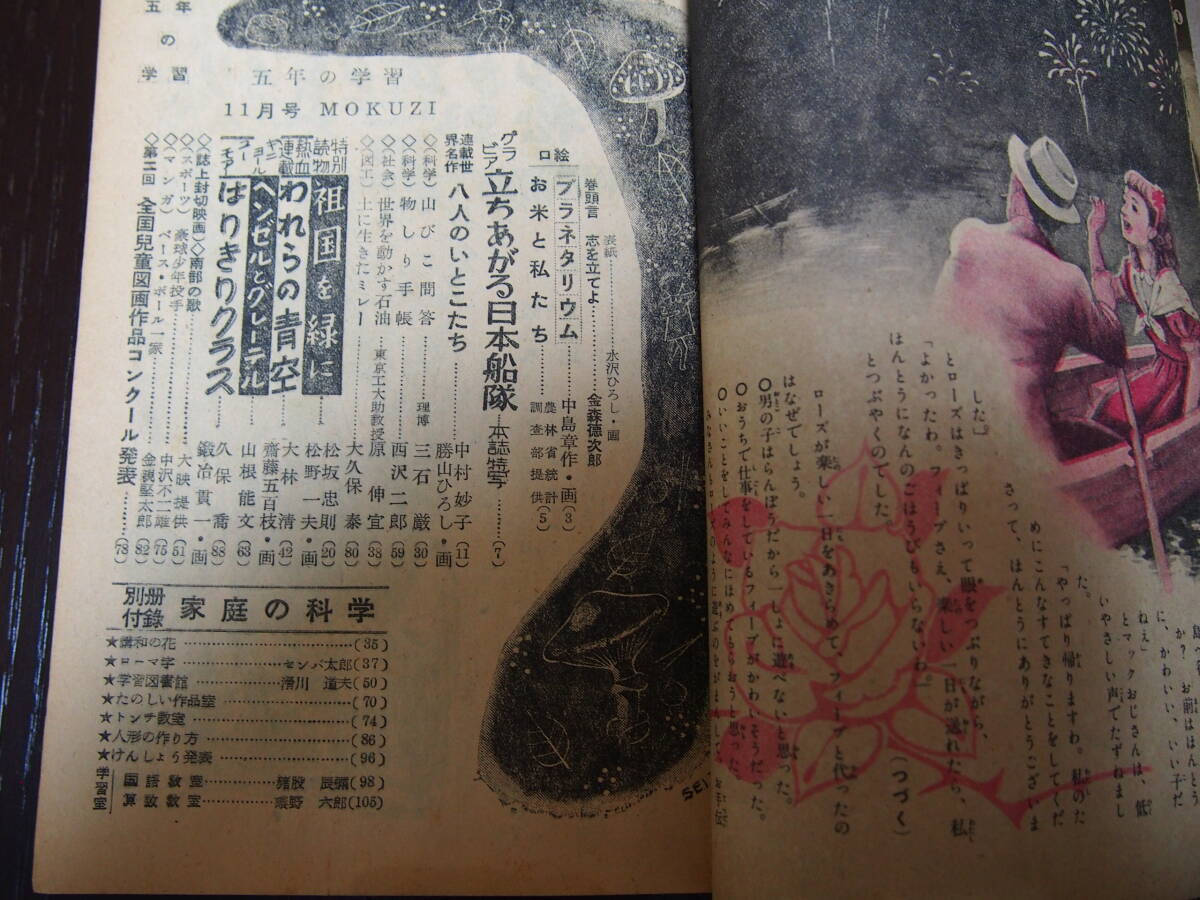 五年の学習
五年の学習
11月号 MOKUZI
表紙 水沢ひろし・画
巻頭言 志を立てよ 金森徳次郎
口絵 プラネタリウム 中島章作・画(3)
お米と私たち 農林省統計調査部提供(5)
グラビア 立ちあがる日本船隊 本誌特写(7)
連載世界名作 八人のいとこたち 中村妙子 勝山ひろし・画(11)
◇(科学) 山びこ問答 理博 三石巌(30)
◇(科学) 物しり手帳 西沢二郎(59)
◇(社会) 世界を動かす石油 東京工大助教授 原伸宜(38)
◇(図工) 土に生きたミレー 大久保泰(80)
特別読物 祖国を緑に 松坂忠則 松野一夫・画(20)
熱血連載 われらの青空 大林清 齋藤五百枝・画(42)
ヘンゼルとグレーテル 山根能文(63)
はりきりクラス 久保喬 鍛冶貫一・画(88)
◇(誌上封切映画)◇南部の歌 大映提供(51)
◇(スポーツ) 豪球少年投手 中沢不二雄(75)
◇(マンガ) ベース・ボール一家 金親堅太郎(82)
◇第二回 全国兒童図画作品コンクール発表(78)
別册付錄 家庭の科学
★講和の花(35)
★ローマ字 センバ太郎(37)
★学習図書館 滑川道夫(50)
★たのしい作品室(70)
★トンチ教室(74)
★人形の作り方(86)
★けんしょう発表(96)
学習室
国語教室 猪股辰彌(98)
算数教室 六郎(105)
か? お前はほんとう
に、かわいい、いい子だ
ねぇ」
とマックおじさんは、低
いやさしい声でたずねまし
た。
「やっぱり帰りますわ。私のた
めにこんなすてきなことをしてくだ
さって、ほんとうにありがとうございま
した。」
とローズはきっぱりいって眼をつぶりながら、
「よかったわ。フィーブさえ、楽しい一日が送れたら、私
ほんとうになんのごほうびもいらないわ。」
とつぶやくのでした。 (つづく)
ローズが楽しい一日をあきらめて、フィーブと代ったの
はなぜでしょう。
○男の子はらんぼうだから一しょに遊べないと思った。
○おうちで仕事をしているフィーブがかわいそうだった。
○いいことをしてみんなにほめてもらおうと思った。
SEI